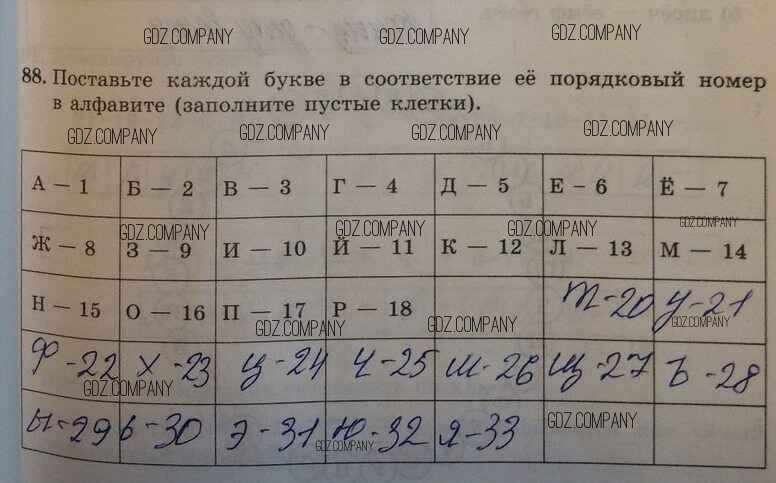 GDZ.COMPANY GDZ.COMPANY GDZ.COMPANY
88. Поставьте каждой букве в соответствие её порядковый номер
в алфавите (заполните пустые клетки).
GDZ.COMPANY GDZ.COMPANY GDZ.COMPANY GDZ.COMPANY
А — 1 Б — 2 В — 3 Г — 4 Д — 5 Е - 6 Ё — 7
GDZ.COMPANY GDZ.COMPANY GDZ.COMPANY GDZ.COMPANY
Ж — 8 З — 9 И — 10 Й — 11 К — 12 Л — 13 М — 14
Н — 15 О — 16 П — 17 Р — 18 Т-20 У-21
GDZ.COMPANY GDZ.COMPANY GDZ.COMPANY
Ф-22 Х-23 Ц-24 Ч-25 Ш-26 Щ-27 Ъ-28
GDZ.COMPANY
Ы-29 Ь-30 Э-31 Ю-32 Я-33
GDZ.COMPANY GDZ.COMPANY